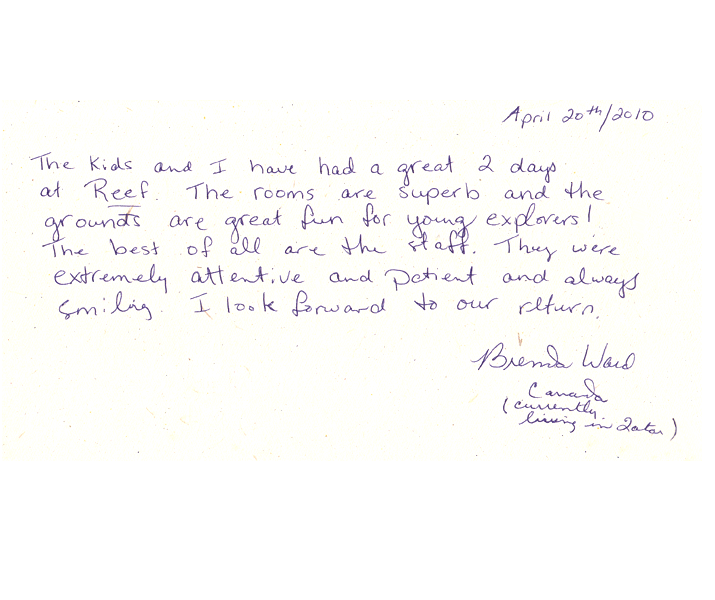 April 20th/2010
The Kids and I have had a great 2 days
at Reef. The rooms are superb and the
grounds are great fun for young explorers!
The best of all are the staff. They were
extremely attentive and patient and always
smiling. I look forward to our return.
Brenda Ward
Canada
(currently
living in Qatar)